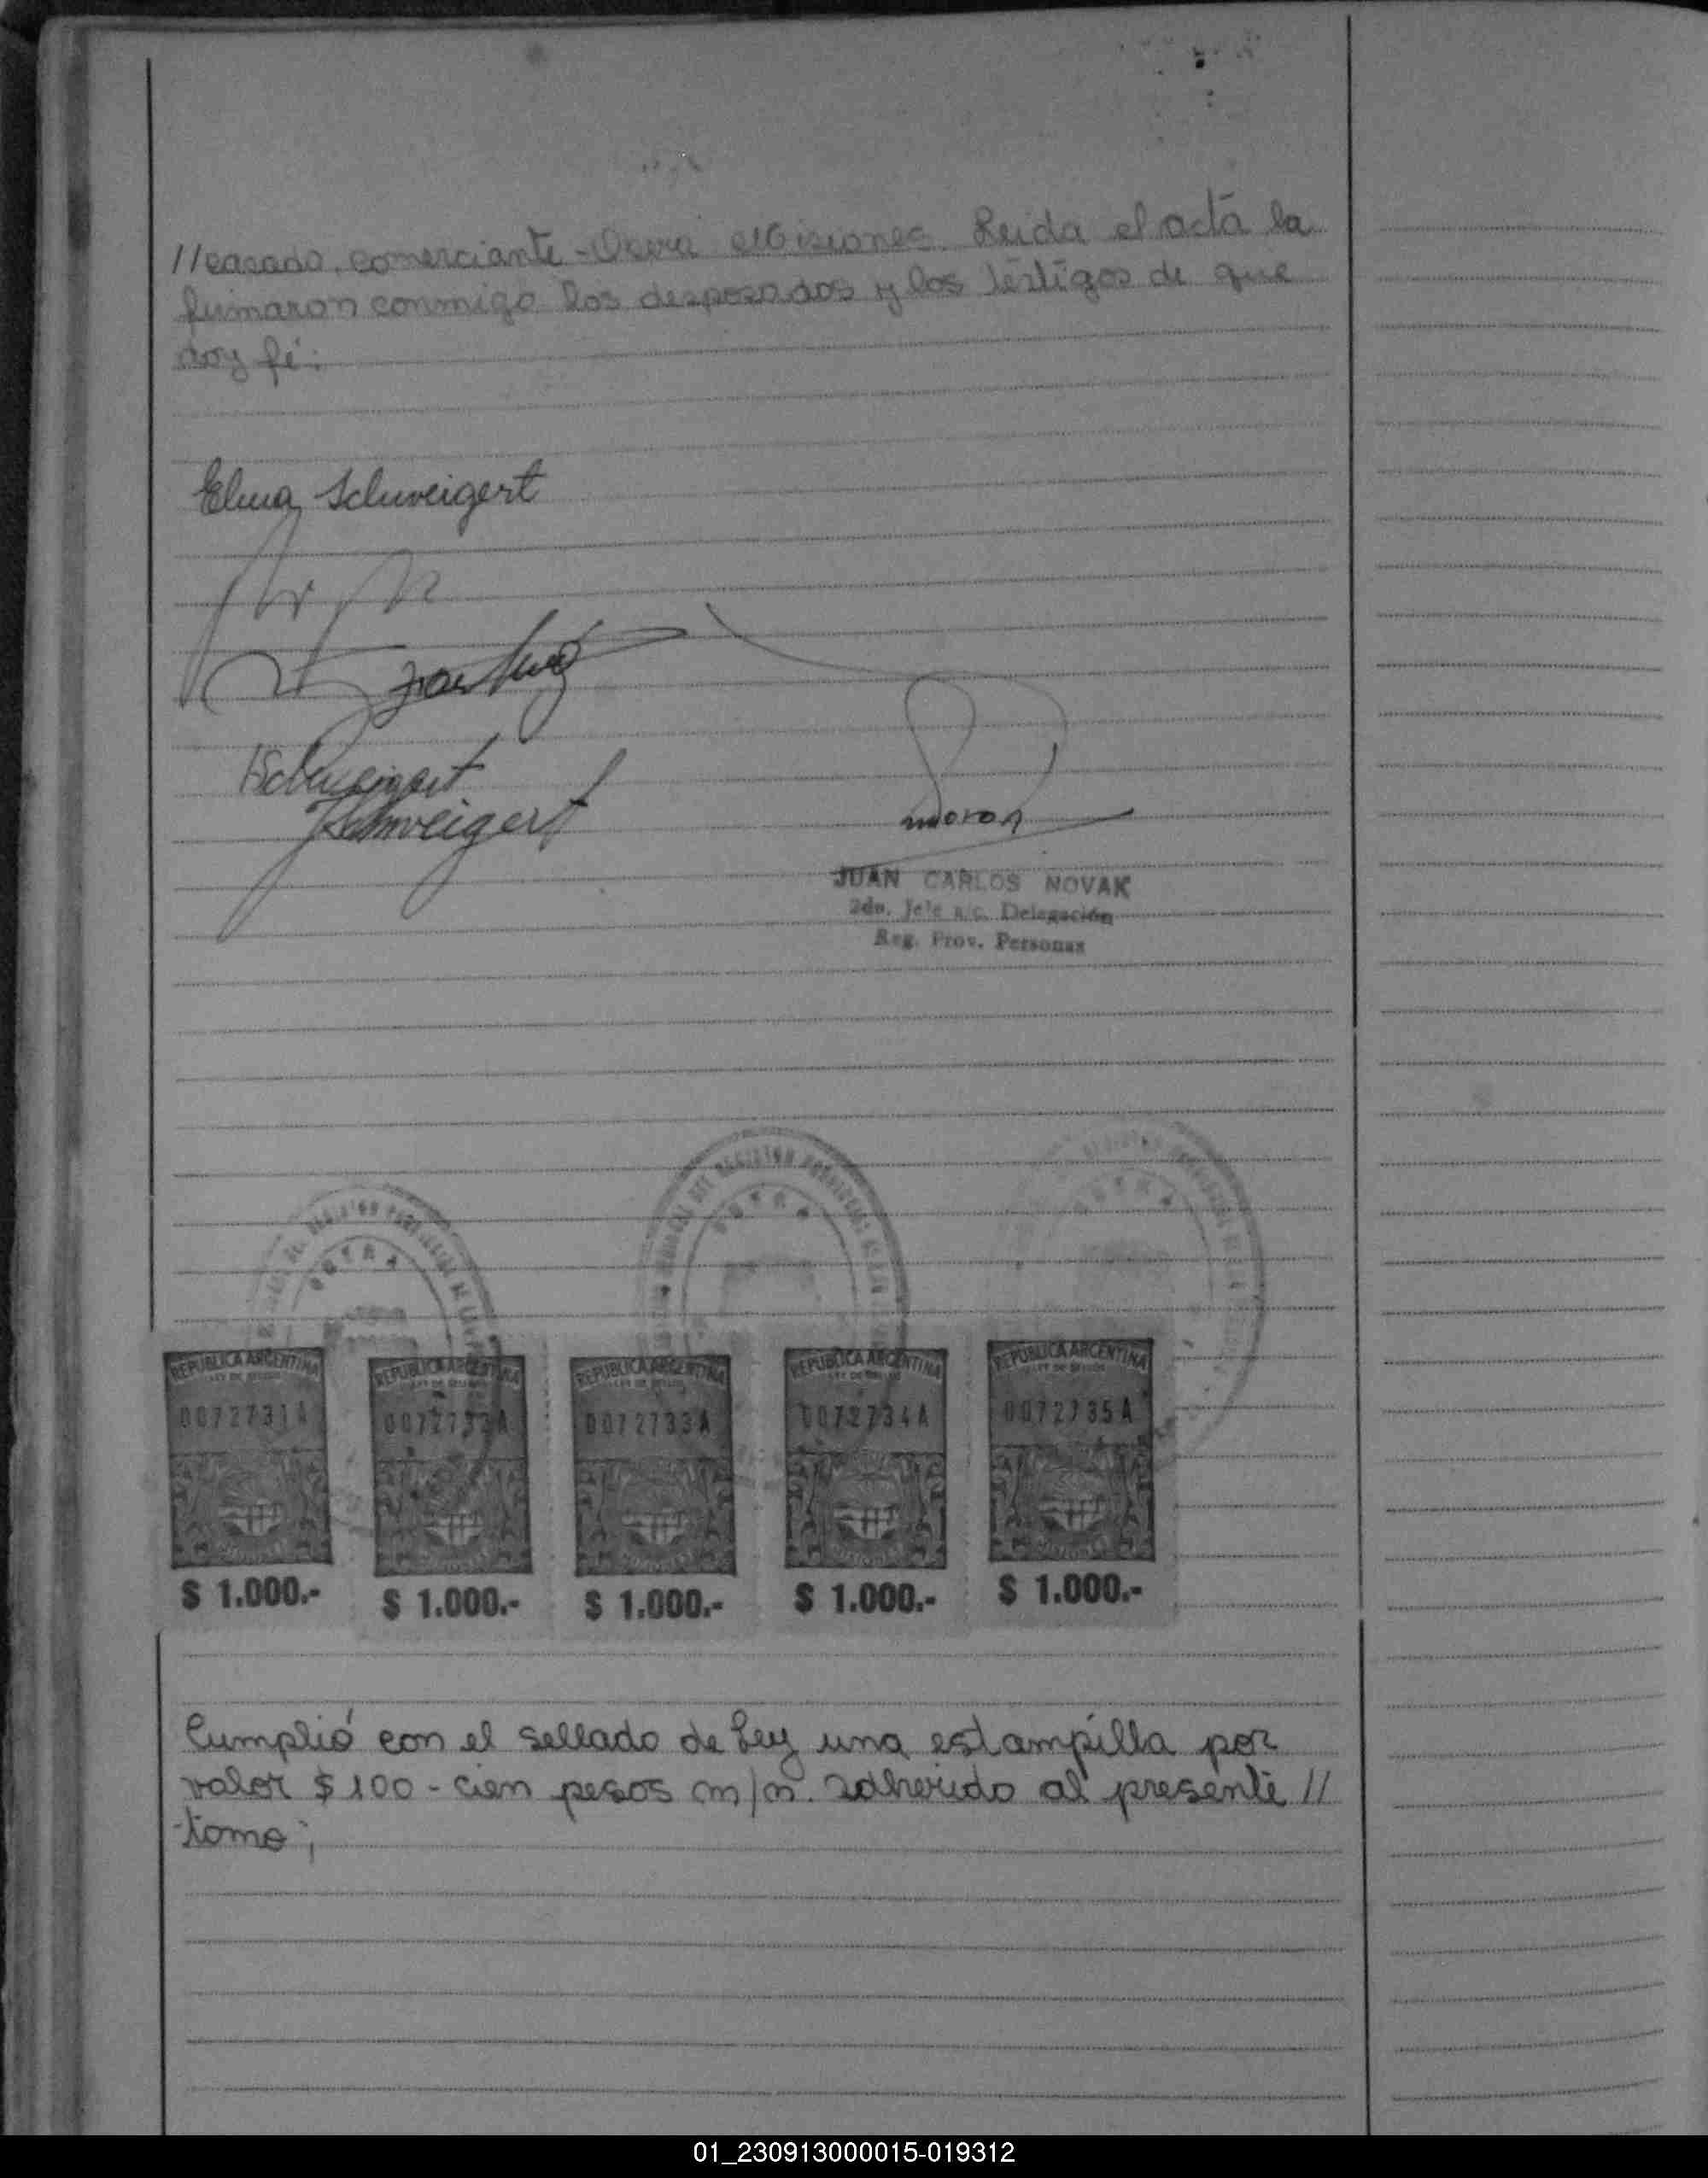 //casado, comerciante - Oberá Misiones. Leida el acta la
firmaron conmigo los desposados y los testigos de que
doy fé:
Elma Schweigert
Schweigert
Schweigert
JUAN CARLOS NOVAK
2do. Jefe a/c. Delegación
Reg. Prov. Personas
REGISTRO
OBERA
REPUBLICA ARGENTINA
LEY DE SELLOS
0072731A
MISIONES
$ 1.000.-
REPUBLICA ARGENTINA
0072732A
MISIONES
$ 1.000.-
REPUBLICA ARGENTINA
0072733A
MISIONES
$ 1.000.-
REPUBLICA ARGENTINA
0072734A
MISIONES
$ 1.000.-
REPUBLICA ARGENTINA
0072735A
MISIONES
$ 1.000.-
Cumplió con el sellado de Ley una estampilla por
valor $ 100 - cien pesos m/n. adherido al presente //
tomo;
01_230913000015-019312